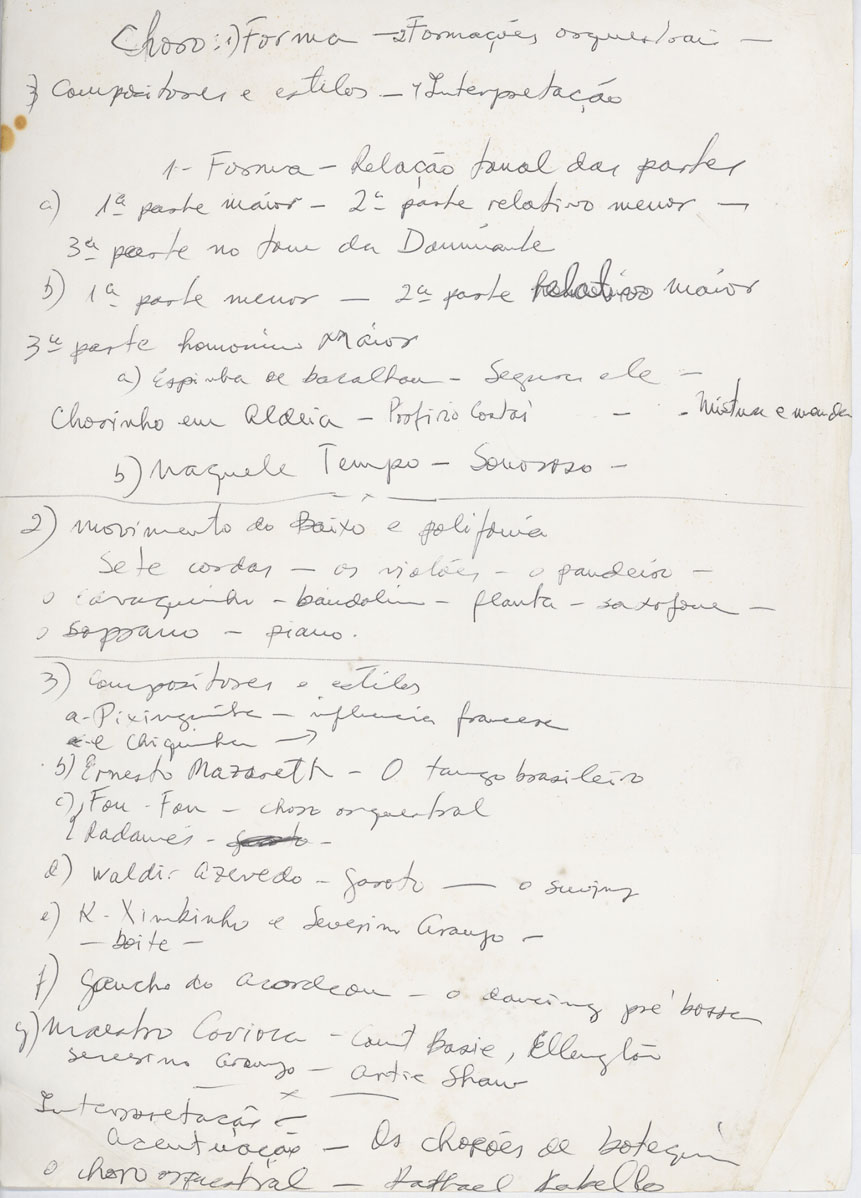 Choro: 1) Forma - 2 Formações orquestrais -
3 Compositores e estilos - 4 Interpretação
1- Forma - Relação tonal das partes
a) 1ª parte maior - 2ª parte relativo menor -
3ª parte no tom da Dominante
b) 1ª parte menor - 2ª parte relativo maior
3ª parte homonimo Maior
a) Espinha de bacalhau - Segura ele -
Chorinho em Aldeia - Profirio Costa - - Mistura e manda
b) Naquele Tempo - Sonoroso -
2) movimento do Baixo e polifonia
Sete cordas - os violões - o pandeiro -
o cavaquinho - bandolim - flauta - saxofone -
o soprano - piano.
3) Compositores e estilos
a- Pixinguinha - influencia francesa
e Chiquinha →
b) Ernesto Nazareth - O tango brasileiro
c) Fon-Fon - choro orquestral
Radamés -
d) Waldir Azevedo - Garoto - o swing
e) K-Ximbinho e Severino Araujo -
- boite -
f) Gaucho do acordeon - o dancing pré bossa
g) Maestro Carioca - Count Basie, Ellington
Severino Araujo - Artie Shaw
x
Interpretação -
acentuação - Os chorões de botequim
o choro orquestral - Raphael Rabello